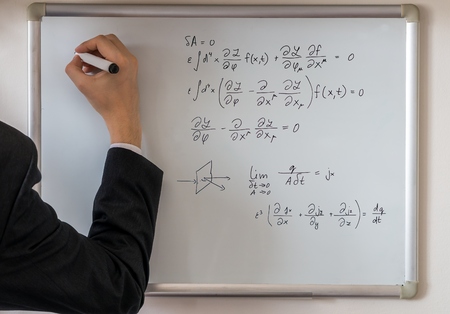 δA = 0
ε∫d⁴x ∂ℒ/∂φ f(x,t) + ∂ℒ/∂φ_μ ∂f/∂x^μ = 0
ε∫d⁴x (∂ℒ/∂φ - ∂/∂x^μ ∂ℒ/∂x_μ) f(x,t) = 0
∂ℒ/∂φ - ∂/∂x^μ ∂ℒ/∂x_μ = 0
lim δt→0 A→0 q/Aδt = jₓ
ε³ (∂jₓ/∂x + ∂j_y/∂y + ∂j_z/∂x) = dq/dt